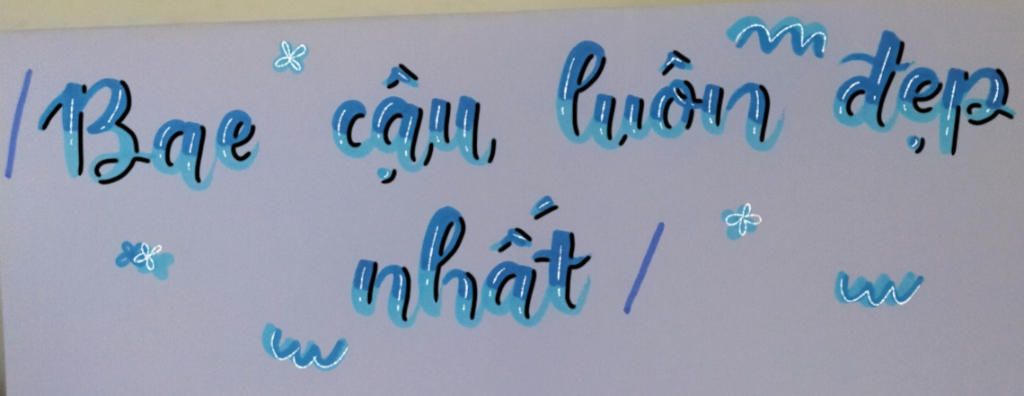 /Bae cậu luôn đẹp
nhất/